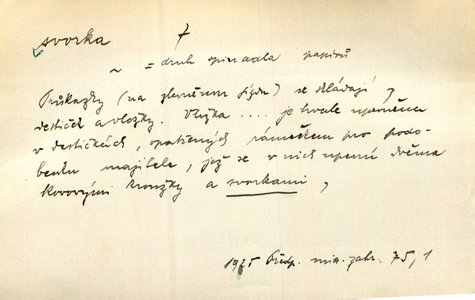 svorka 7
~ = druh spinadla papírů
Průkazky (na zlevněnou jízdu) se skládají z
destiček a vložky. Vložka .... je trvale upevněna
v destičkách, opatřených rámečkem pro podo-
benku majitele, jež se v nich upevní dvěma
kovovými kroužky a svorkami,
1925 Předp. min. žel. 75, 1